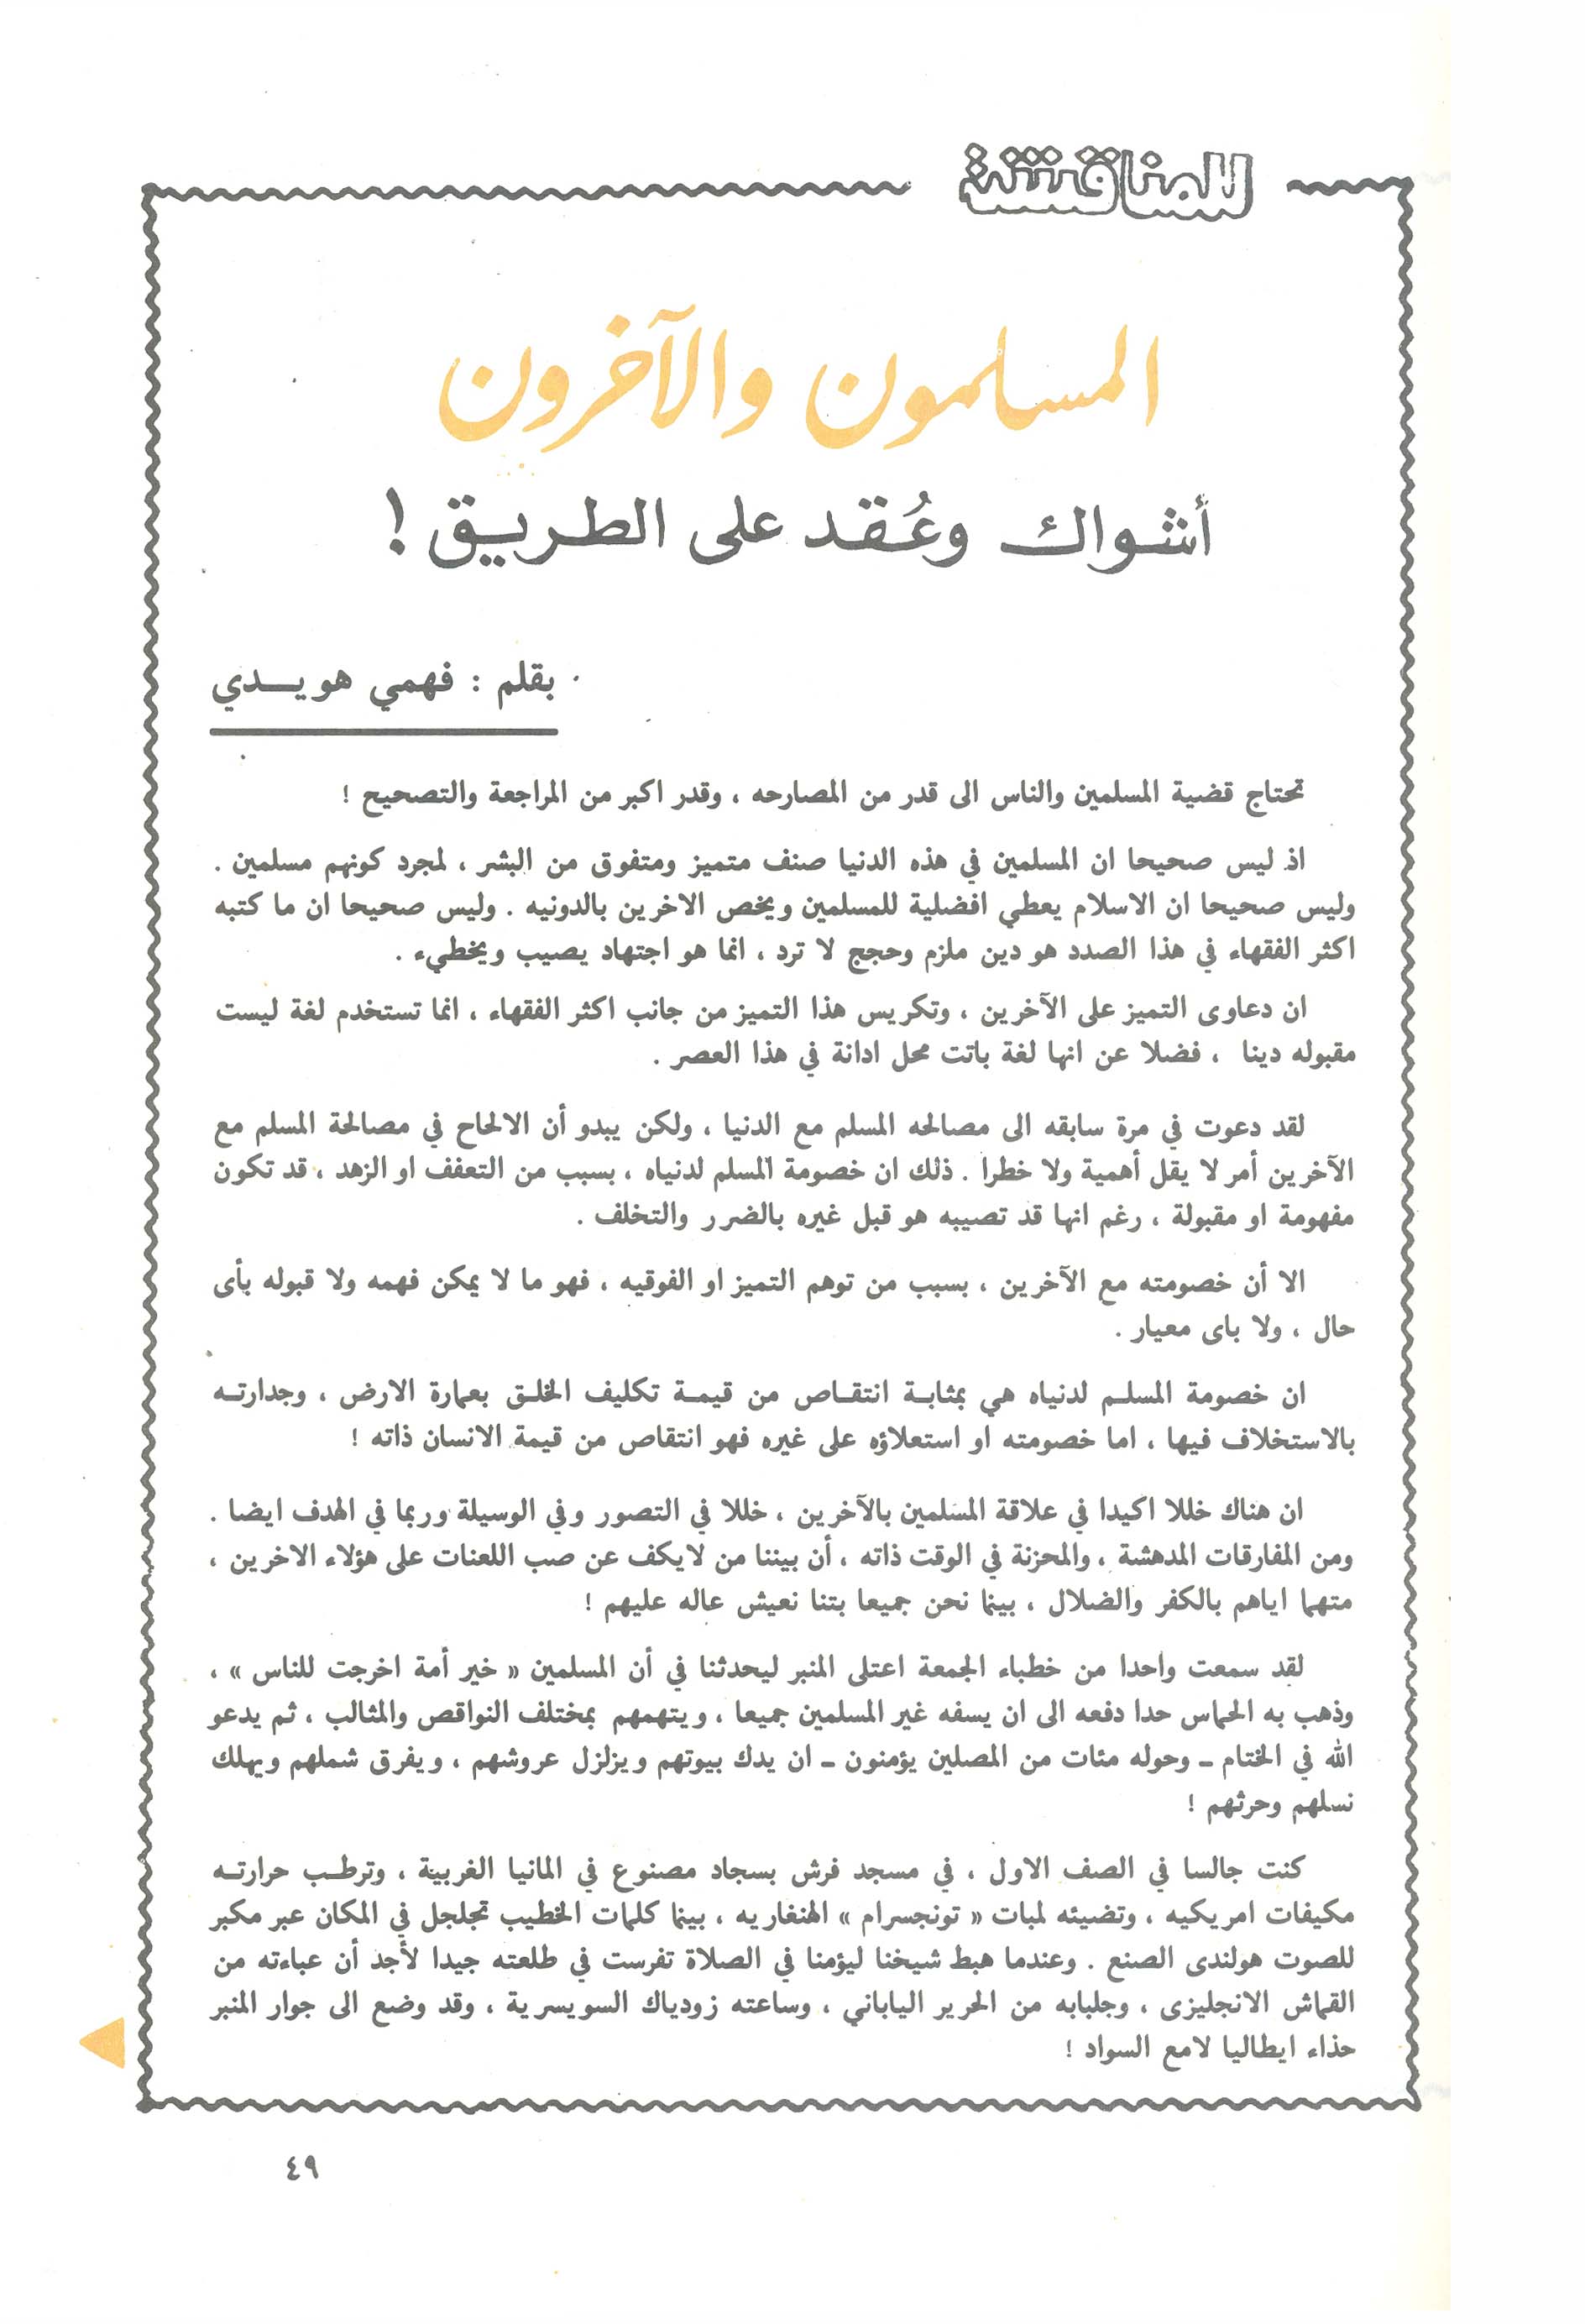 للمناقشة
المسلمون والآخرون
أشواك وعُقد على الطريق !
بقلم : فهمي هويدي
تحتاج قضية المسلمين والناس الى قدر من المصارحه ، وقدر اكبر من المراجعة والتصحيح !
اذ ليس صحيحا ان المسلمين في هذه الدنيا صنف متميز ومتفوق من البشر ، لمجرد كونهم مسلمين .
وليس صحيحا ان الاسلام يعطي افضلية للمسلمين ويخص الاخرين بالدونيه . وليس صحيحا ان ما كتبه
اكثر الفقهاء في هذا الصدد هو دين ملزم وحجج لا ترد ، انما هو اجتهاد يصيب ويخطيء .
ان دعاوى التميز على الآخرين ، وتكريس هذا التميز من جانب اكثر الفقهاء ، انما تستخدم لغة ليست
مقبوله دينا ، فضلا عن انها لغة باتت محل ادانة في هذا العصر .
لقد دعوت في مرة سابقه الى مصالحه المسلم مع الدنيا ، ولكن يبدو أن الالحاح في مصالحة المسلم مع
الآخرين أمر لا يقل أهمية ولا خطرا . ذلك ان خصومة المسلم لدنياه ، بسبب من التعفف او الزهد ، قد تكون
مفهومة او مقبولة ، رغم انها قد تصيبه هو قبل غيره بالضرر والتخلف .
الا أن خصومته مع الآخرين ، بسبب من توهم التميز او الفوقيه ، فهو ما لا يمكن فهمه ولا قبوله بأى
حال ، ولا باى معيار .
ان خصومة المسلم لدنياه هي بمثابة انتقاص من قيمة تكليف الخلق بعمارة الارض ، وجدارته
بالاستخلاف فيها ، اما خصومته او استعلاؤه على غيره فهو انتقاص من قيمة الانسان ذاته !
ان هناك خللا اكيدا في علاقة المسلمين بالآخرين ، خللا في التصور وفي الوسيلة وربما في الهدف ايضا .
ومن المفارقات المدهشة ، والمحزنة في الوقت ذاته ، أن بيننا من لايكف عن صب اللعنات على هؤلاء الاخرين ،
متهما اياهم بالكفر والضلال ، بينما نحن جميعا بتنا نعيش عاله عليهم !
لقد سمعت واحدا من خطباء الجمعة اعتلى المنبر ليحدثنا في أن المسلمين « خير أمة اخرجت للناس » ،
وذهب به الحماس حدا دفعه الى ان يسفه غير المسلمين جميعا ، ويتهمهم بمختلف النواقص والمثالب ، ثم يدعو
الله في الختام ـ وحوله مئات من المصلين يؤمنون ـ ان يدك بيوتهم ويزلزل عروشهم ، ويفرق شملهم ويهلك
نسلهم وحرثهم !
كنت جالسا في الصف الاول ، في مسجد فرش بسجاد مصنوع في المانيا الغربية ، وترطب حرارته
مكيفات امريكيه ، وتضيئه لمبات « تونجسرام » الهنغاريه ، بينما كلمات الخطيب تجلجل في المكان عبر مكبر
للصوت هولندى الصنع . وعندما هبط شيخنا ليؤمنا في الصلاة تفرست في طلعته جيدا لأجد أن عباءته من
القماش الانجليزى ، وجلبابه من الحرير الياباني ، وساعته زودياك السويسرية ، وقد وضع الى جوار المنبر
حذاء ايطاليا لامع السواد !
٤٩